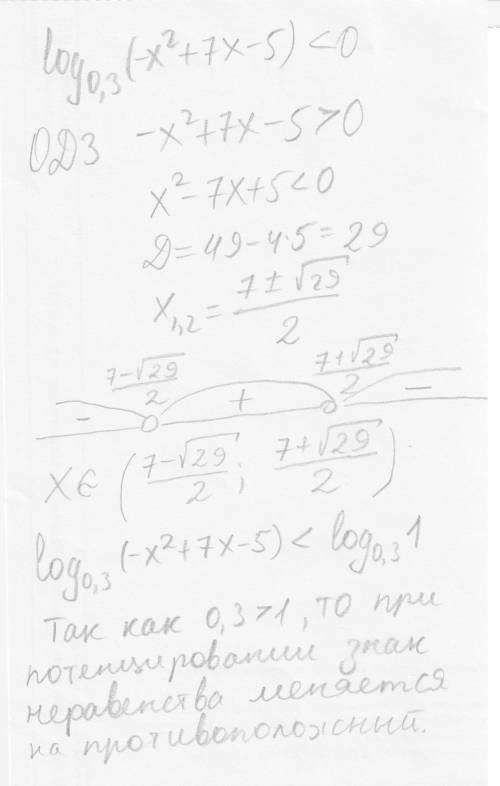 log₀,₃(-x²+7x-5)<0
ОДЗ -x²+7x-5>0
x²-7x+5<0
Д=49-4·5=29
x₁,₂=(7±√29)/2
(7-√29)/2 (7+√29)/2
- + -
x∈((7-√29)/2; (7+√29)/2)
log₀,₃(-x²+7x-5)<log₀,₃1
Так как 0,3>1, то при
потенцировании знак
неравенства меняется
на противоположный.